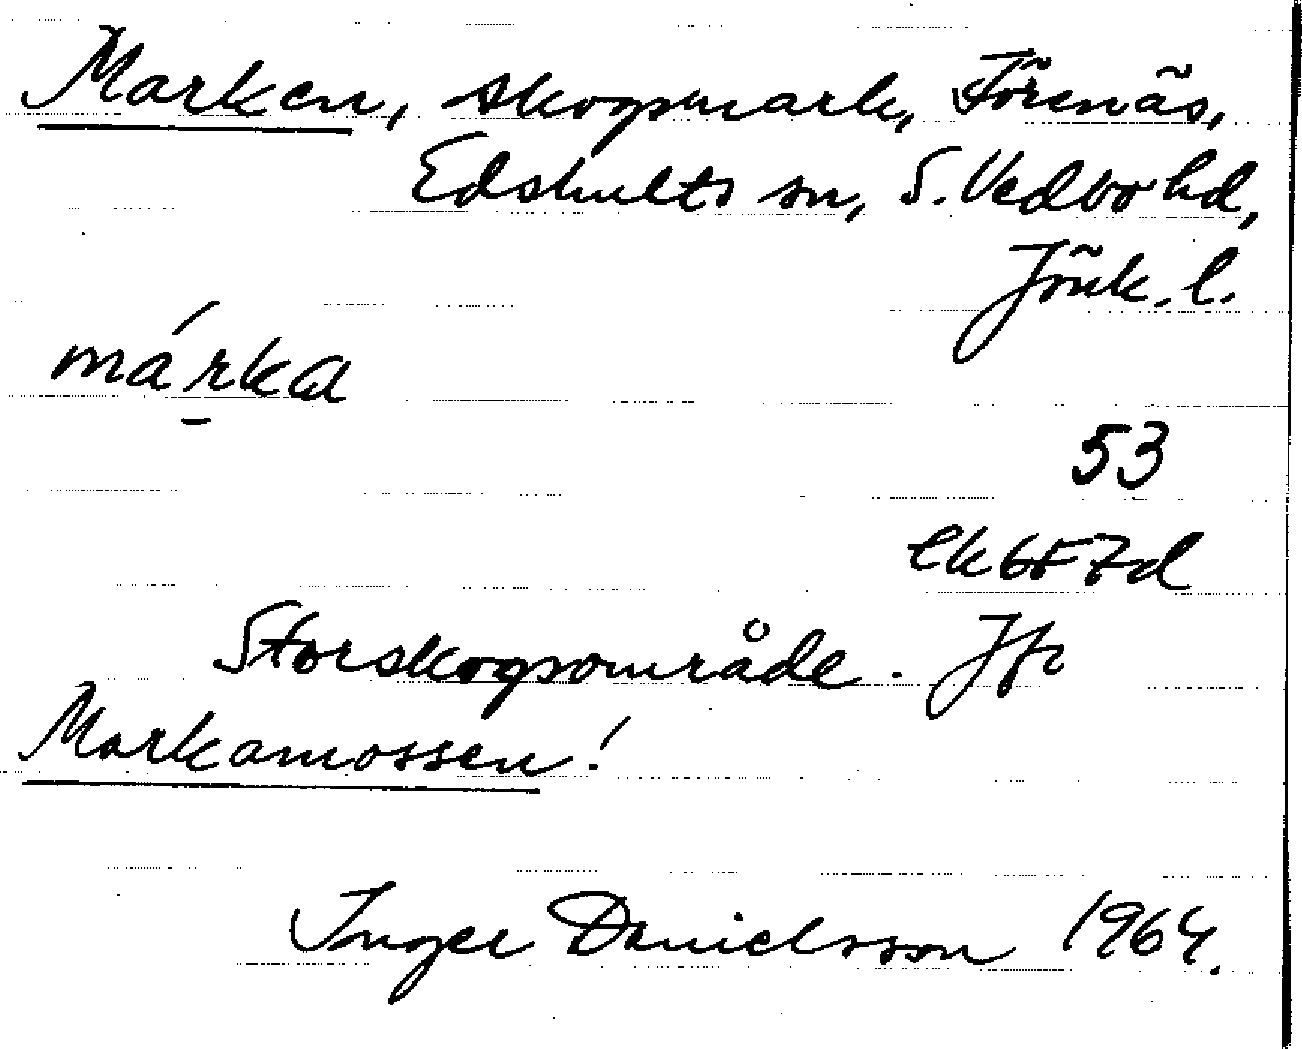 Marken, skogsmark, Förenäs,
Edshults sn, S. Vedbo hd,
Jönk. l.
márka
53
ek 6F7d
Storskogsområde. Jfr
Markamossen!
Inger Danielsson 1964.